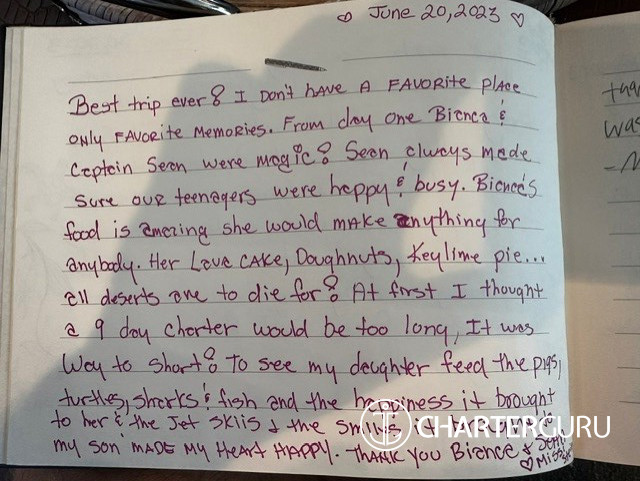 ♡ June 20, 2023 ♡
Best trip ever! I Don't have A FAVORITE place
only FAVORITE Memories. From day one Bianca &
Captain Sean were magic! Sean always made
sure our teenagers were happy & busy. Bianca's
food is amazing she would make anything for
anybody. Her Love CAKE, Doughnuts, Key lime pie...
all deserts are to die for! At first I thought
a 9 day charter would be too long, It was
Way to short! To see my daughter feed the pigs,
turtles, sharks & fish and the happiness it brought
to her & the Jet skiis & the smiles it
my son MADE MY Heart HAPPY. THANK You Bianca & Sean
♡
CHARTERGURU